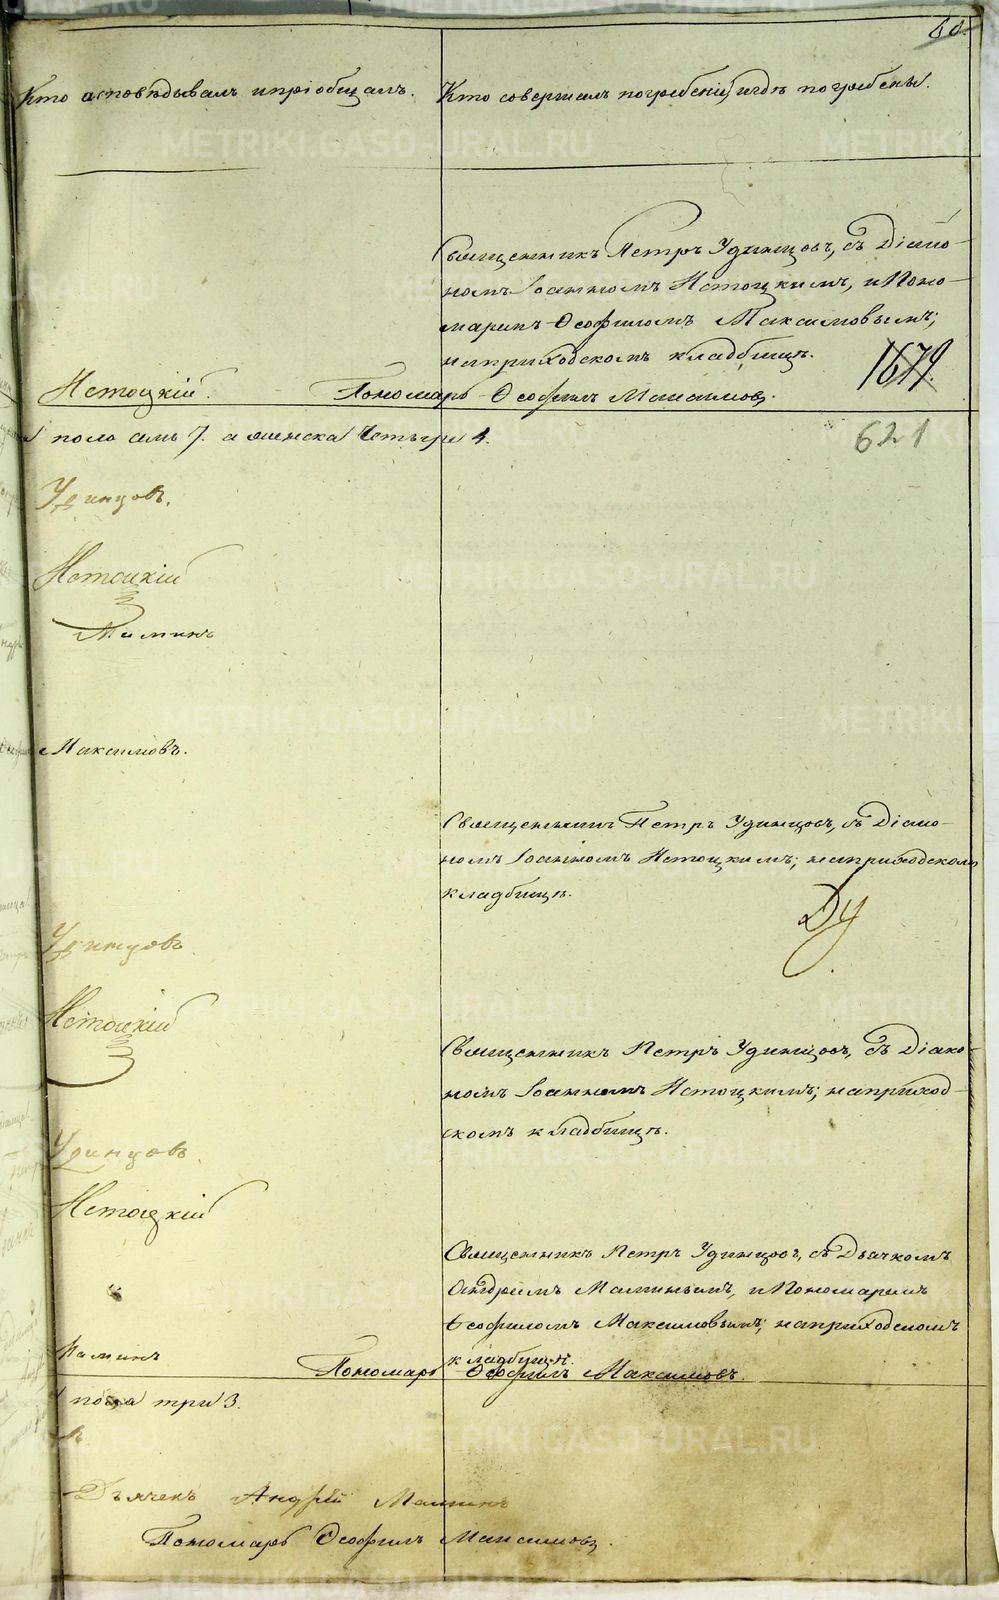 Кто исповѣдывалъ и пріобщалъ.
Кто совершалъ погребеніе, и гдѣ погребены.
Священникъ Петръ Удинцовъ, съ Діако-
номъ Іоанномъ Истоцкимъ, и Поно-
маремъ Ѳеофиломъ Максимовымъ;
на приходскомъ кладбищѣ.
1679.
Истоцкій. Пономарь Ѳеофилъ Максимовъ.
пола семь 7. а женска четыре 4.
621
Удинцовъ.
Истоцкій
Маминъ
Максимовъ.
Священникъ Петръ Удинцовъ, съ Діако-
номъ Іоанномъ Истоцкимъ; на приходскомъ
кладбищѣ.
Ду
Удинцовъ
Истоцкій
Священникъ Петръ Удинцовъ, съ Діако-
номъ Іоанномъ Истоцкимъ; на приход-
скомъ кладбищѣ.
Удинцовъ.
Истоцкій
Священникъ Петръ Удинцовъ, съ Дьячкомъ
Андреемъ Маминымъ, и Пономаремъ
Ѳеофиломъ Максимовымъ; на приходскомъ
кладбищѣ.
Маминъ
Пономарь Ѳеофилъ Максимовъ.
пола три 3.
Дьячекъ Андрей Маминъ
Пономарь Ѳеофилъ Максимовъ.
METRIKI.GASO-URAL.RU